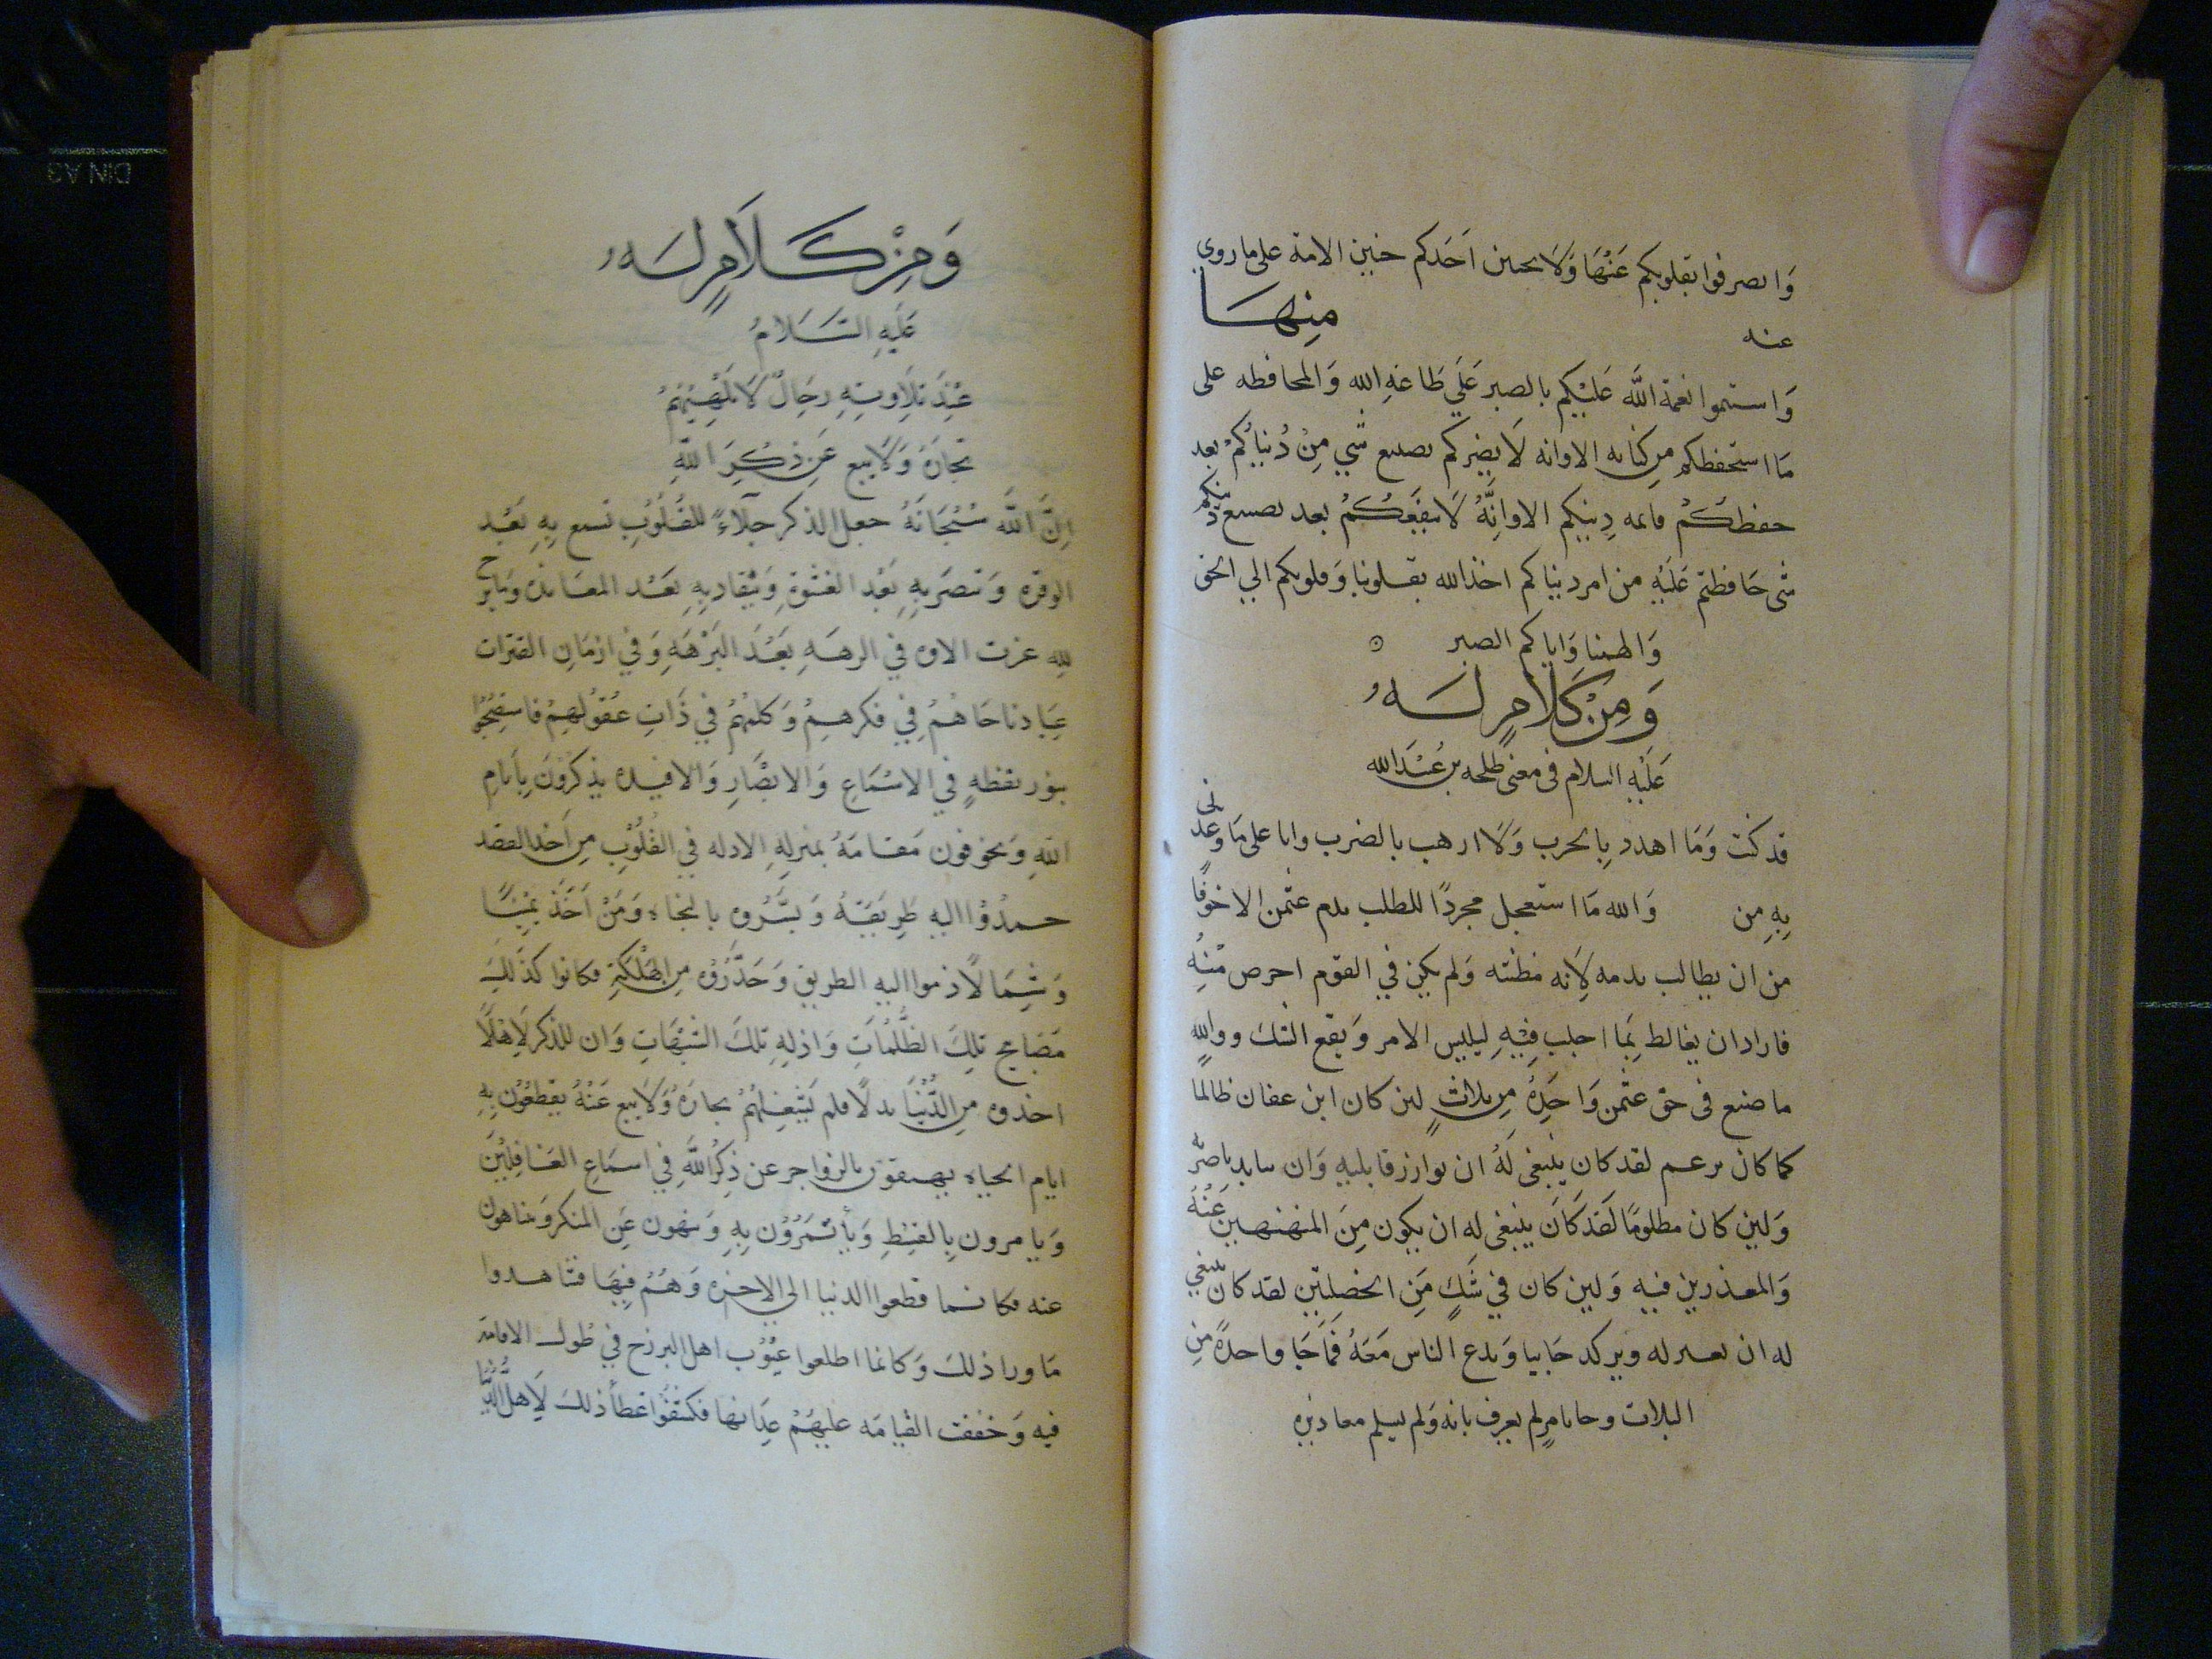 وَانصرفوا بقلوبكم عَنْهَا وَلَا يحنن اَحَدكم حنين الامة على ما زوى
عنه مِنهَا
وَاستموا نعمة اللَّه عَلَيْكم بالصبر عَلَى طَاعَةِ الله وَالمحافظه على
مَا استحفظكم مِن كتابه الا وانه لَا يضركم تضييع شَي مِنْ دُنياكُمْ بعد
حفظكُمْ قائمه دِينكم الا وانِّهُ لَا ينفَعكُمْ بعد تضييع دينكم
شى حَافظتم عَلَيْهِ من امر دنياكم اخذ الله بقلوبنا وَقلوبكم الي الحق
وَالهمنا وَاياكم الصبر
وَمِنْ كَلَامٍ لَهُ
عَلَيْهِ السلام فى معنى طلحه بن عُبَيْدَ الله
قد كنت وَمَا اهدد بِالحرب وَلَا ارهب بالضرب وانا على مَا وعدنى
بِهِ مِن وَالله مَا استعجل مجردًا للطلب بدم عثمن الا خوفًا
من ان يطالب بدمه لِانه مظنته وَلم يكن في القوم احرص مِنْهُ
فاراد ان يغالط بِمَا اجلب فِيْهِ لِيلبس الامر وَيقع الشك ووالله
ما صنع فى حق عثمن وَاحِدةً مِن ثلاثٍ لئن كان ابن عفان ظالما
كما كان يزعم لقد كان ينبغى لَهُ ان يوازر قاتليه وَان ينابد ناصريه
وَلئن كان مظلومًا لَقَد كَانَ ينبغى له ان يكون مِنَ المنهنهين عَنْهُ
وَالمعذرين فيه وَلئن كان في شَكٍ مَِن الخصلتين لقد كان ينبغي
له ان يعتزله ويركد جَانبا وَيدع الناس مَعَهُ فَمَا فعل واحدةً مِن
الثلاث وجا بامرٍ لم يعرف بابه وَلم تسلم معاذيره
وَمِنْ كَلَامٍ لَهُ
عَلَيْهِ السَّلَامُ
عِنْدَ تِلَاوتِهِ رِجَالٌ لَا تُلْهِيْهِمْ
تِجَارَةٌ وَلَا بَيع عَن ذِكْرِ اللَّهِ
اِنَّ اللَّه سُبْحَانَهُ جعل الذكر جلآءً للقُلُوبِ تسمع بِهِ بَعْد
الوقرة وَتبصر بِهِ بَعْدَ العَشْوَةِ وَتنقاد بِهِ بَعْدَ المعَاندة وَمَا برح
لله عزت الاوه فِي البرهَةِ بَعْدَ البَرْهَةِ وَفي ازمَانِ الفترات
عِبَاد ناجَاهُمْ فِي فكرهِمْ وَكلمهُمْ في ذَاتِ عُقولهِمْ فاستصبحُوا
بنور يقظهٍ في الاسْمَاعِ وَالابصَارِ وَالافيده يذكرُونَ بِأيامِ
اللهِ وَيخوفون مَقَامَهُ بمنزلهِ الادله في القُلُوبِ مِن اَخذ القصد
حمدُوْا اليهِ طَرِيقَهُ وَبشَّروه بالنجاة وَمَنْ اَخَذَ يمينًا
وَشِمَالًا ذموا اليهِ الطريق وَحَذَّرُوْه مِن الهَلْكَةِ فكانوا كذلِكَ
مَصَابيح تلكَ الظُّلُمَاتِ وَادله تلكَ الشبُهَاتِ وَان للذكر لَاهلًا
اخذوه مِن الدُّنْيَا بدلًا فلم تَشْغلْهُمْ تجارَةٌ وَلَا بَيع عَنْهُ يقطعُوْن بِهِ
ايام الحياه ويهتفون بالزواجر عن ذِكْرُ اللَّهِ فِي اسمَاعِ الغَافِلِيْنَ
وَيامرون بِالقِسْطِ وَيأتَمِرُوْن بِهِ وَينهون عَنِ المنكر وَيتناهون
عنه فكانما قطعوا الدنيا الى الاخرة وَهُمْ فِيهَا فشاهدوا
مَا ورا ذلكَ وَكانما اطلعوا عيُوْب اهل البرزخ في طول الاقامة
فيه وَحققت القيامَه عليهُمْ عِدَاتها فكشفُوْا غطأ ذلك لَاِهل الدُّنْيا